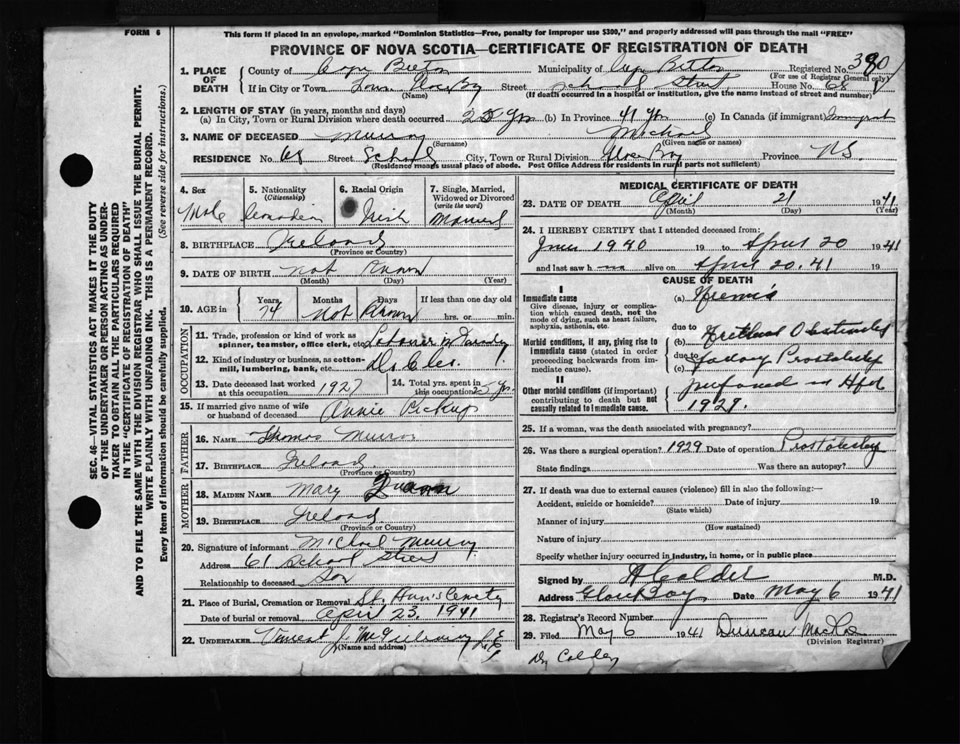 FORM 6
This form if placed in an envelope, marked "Dominion Statistics—Free, penalty for improper use $300," and properly addressed will pass through the mail "FREE"
PROVINCE OF NOVA SCOTIA—CERTIFICATE OF REGISTRATION OF DEATH
SEC. 46—VITAL STATISTICS ACT MAKES IT THE DUTY
OF THE UNDERTAKER OR PERSON ACTING AS UNDER-
TAKER TO OBTAIN ALL THE PARTICULARS REQUIRED
IN THE "CERTIFICATE OF REGISTRATION OF DEATH"
AND TO FILE THE SAME WITH THE DIVISION REGISTRAR WHO SHALL ISSUE THE BURIAL PERMIT.
WRITE PLAINLY WITH UNFADING INK. THIS IS A PERMANENT RECORD.
Every item of information should be carefully supplied. (See reverse side for instructions.)
1. PLACE OF DEATH
County of Cape Breton Municipality of Cape Breton Registered No. 380
(For use of Registrar General only)
If in City or Town Town Street School Street House No. 68
(Name) (If death occurred in a hospital or institution, give the name instead of street and number)
2. LENGTH OF STAY (in years, months and days)
(a) In City, Town or Rural Division where death occurred 25 yrs (b) In Province 41 yrs (c) In Canada (if immigrant) Immigrant
3. NAME OF DECEASED Murray Michael
(Surname) (Given name or names)
RESIDENCE No. 68 Street School City, Town or Rural Division Glace Bay Province N.S.
(Residence means usual place of abode. Post Office Address for residents in rural parts not sufficient)
4. Sex Male
5. Nationality (Citizenship) Canadian
6. Racial Origin Irish
7. Single, Married, Widowed or Divorced (write the word) Married
8. BIRTHPLACE Ireland
(Province or Country)
9. DATE OF BIRTH not known
(Month) (Day) (Year)
10. AGE in Years 74 Months not Days known If less than one day old hrs. or min.
OCCUPATION
11. Trade, profession or kind of work as
spinner, teamster, office clerk, etc. Labourer in Foundry
12. Kind of industry or business, as cotton-
mill, lumbering, bank, etc.
13. Date deceased last worked at this occupation 1927
14. Total yrs. spent in this occupation 25 yrs.
15. If married give name of wife or husband of deceased Annie Pickup
FATHER
16. NAME Thomas Murray
17. BIRTHPLACE Ireland
(Province or Country)
MOTHER
18. MAIDEN NAME Mary
19. BIRTHPLACE Ireland
(Province or Country)
20. Signature of informant Michael Murray
Address 61 School Street
Relationship to deceased Son
21. Place of Burial, Cremation or Removal St. Ann's Cemetery
Date of burial or removal April 23, 1941
22. UNDERTAKER Vincent J.
(Name and address)
MEDICAL CERTIFICATE OF DEATH
23. DATE OF DEATH April 21 1941
(Month) (Day) (Year)
24. I HEREBY CERTIFY that I attended deceased from:
June 1940 19 to April 20 1941
and last saw h alive on April 20. 41 19
CAUSE OF DEATH
I
Immediate cause
Give disease, injury or complica-
tion which caused death, not the
mode of dying, such as heart failure,
asphyxia, asthenia, etc.
(a) Uremia
due to
Morbid conditions, if any, giving rise to
immediate cause (stated in order
proceeding backwards from im-
mediate cause).
(b) Urethral Obstruction
due to
(c)
II
Other morbid conditions (if important)
contributing to death but not
causally related to immediate cause.
performed in
1929.
25. If a woman, was the death associated with pregnancy?
26. Was there a surgical operation? 1929 Date of operation
State findings Was there an autopsy?
27. If death was due to external causes (violence) fill in also the following:—
Accident, suicide or homicide? Date of injury 19
(State which)
Manner of injury
(How sustained)
Nature of injury
Specify whether injury occurred in industry, in home, or in public place
Signed by A Calder M.D.
Address Glace Bay Date May 6 1941
28. Registrar's Record Number
29. Filed May 6 1941 Duncan
(Division Registrar)
Dr Calder